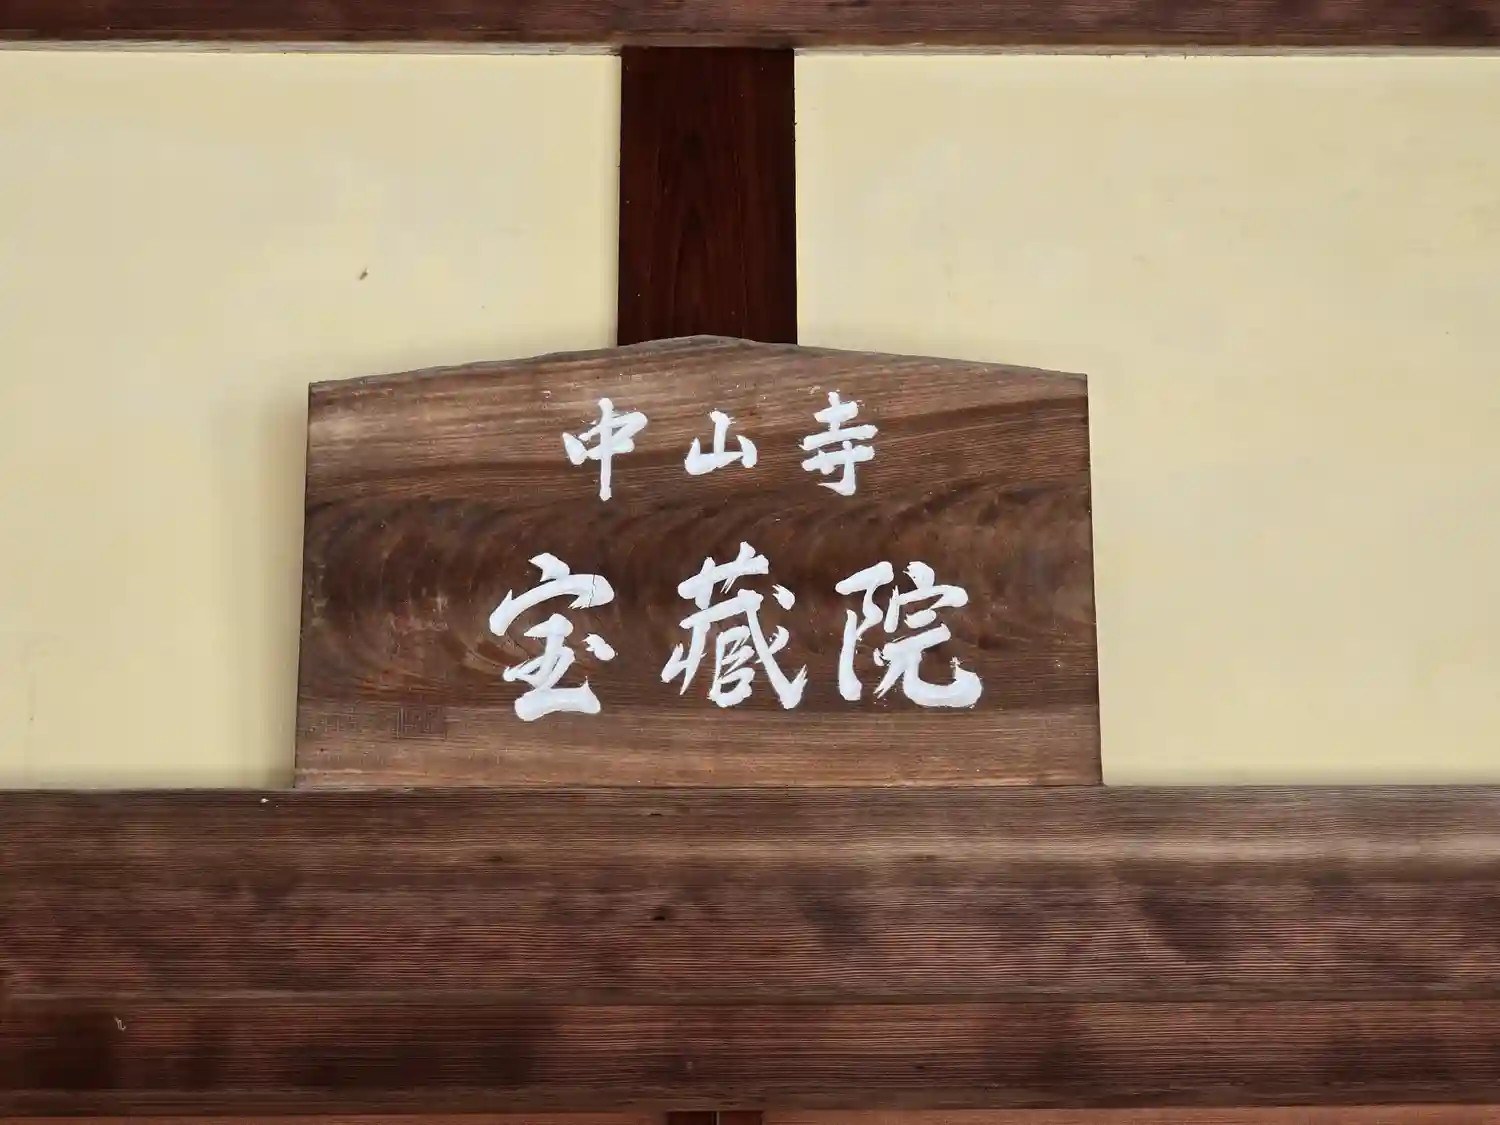 中山寺
宝蔵院